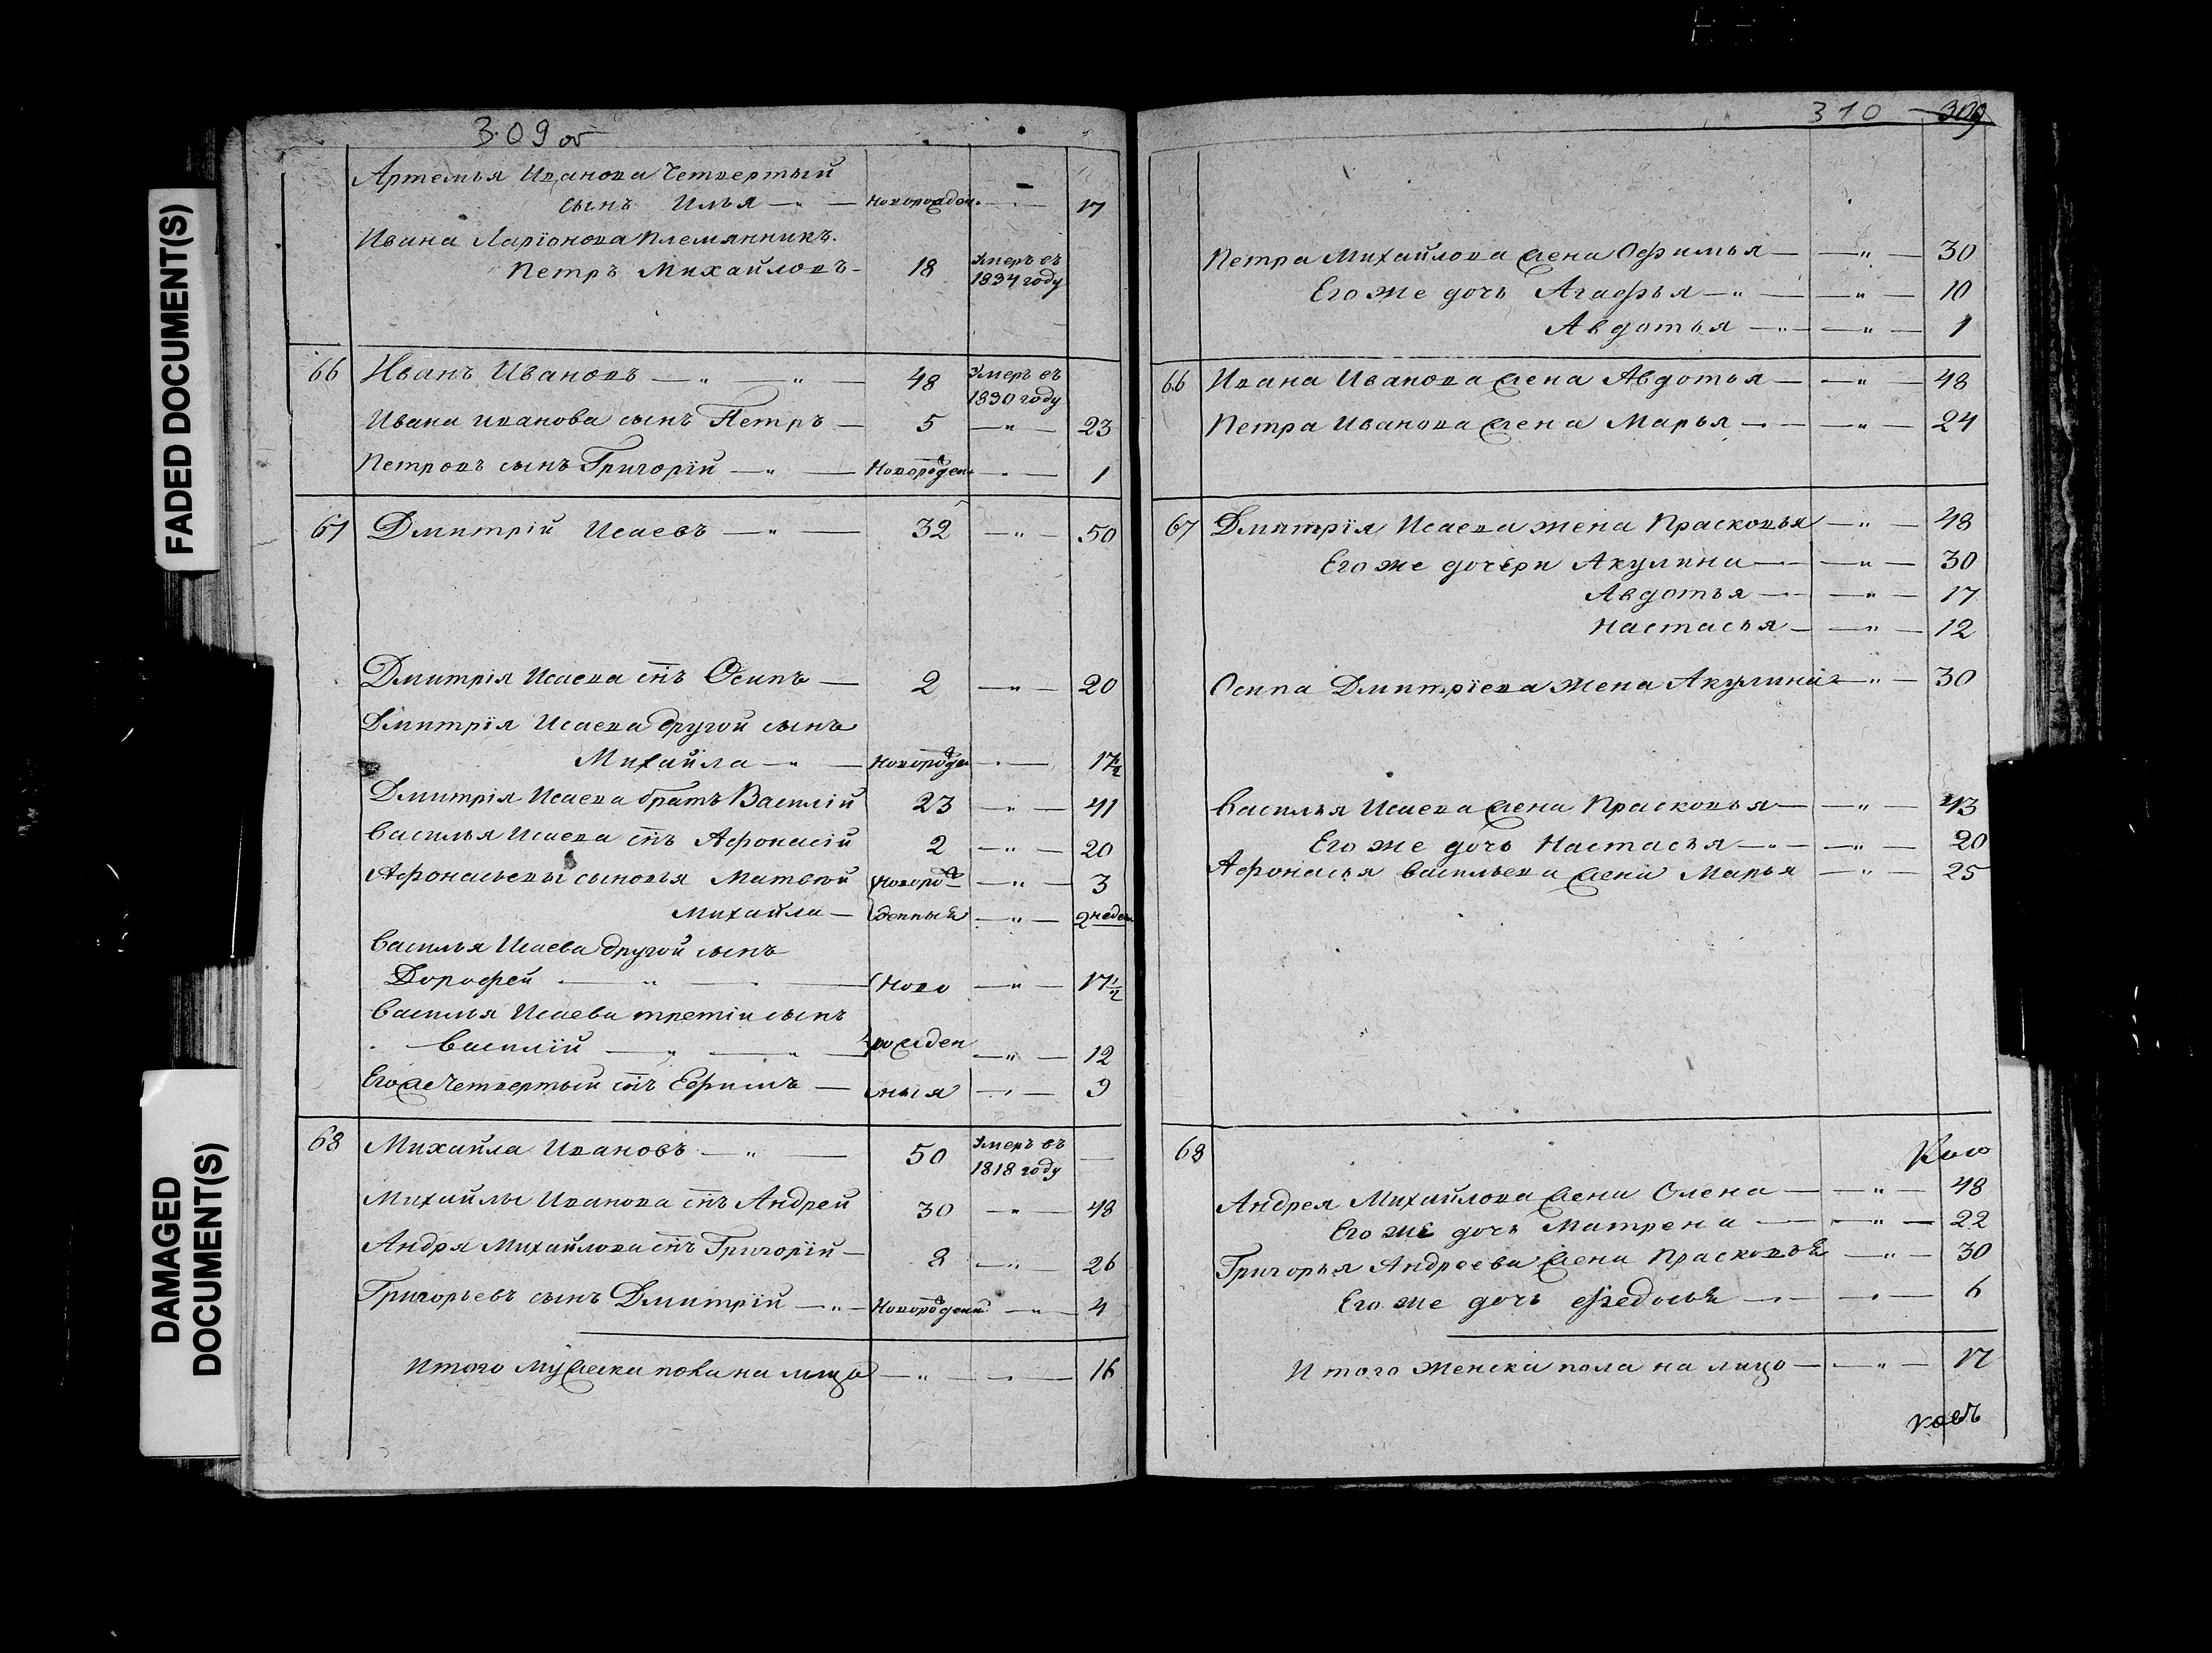 FADED DOCUMENT(S)
DAMAGED
DOCUMENT(S)
309 об
Артемья Иванова Четвертый
сынъ Илья — " — новорожден. — " — 17
Ивана Ларіонова племянникъ.
Петръ Михайловъ - 18 Умеръ въ
1834 году
66 Иванъ Ивановъ — " — " — 48 Умеръ въ
1830 году
Ивана иванова сынъ Петръ — 5 — " — 23
Петровъ сынъ Григорій — " — Новорожден. — " — 1
67 Дмитрій Исаевъ — " — 32 — " — 50
Дмитрія Исаева снъ Осипъ — 2 — " — 20
Дмитрія Исаева другой сынъ
Михайла — " — Новорожден — " — 17½
Дмитрія Исаева братъ Василій 23 — " — 41
Василья Исаева снъ Афонасій 2 — " — 20
Афонасьевы сыновья Матвѣй Новорож — " — 3
Михайла — денныя — " — 2 недел
Василья Исаева другой сынъ
Дорофей — " — Ново — " — 17½
Василья Исаева третіи сынъ
Василій — " — " — рожден — " — 12
Егоже Четвертый снъ Ефимъ — ныя — " — 9
68 Михайла Ивановъ — " — 50 Умеръ въ —
1818 году
Михайлы Иванова снъ Андрей 30 — " — 48
Андря Михайлова снъ Григорій — 8 — " — 26
Григорьевъ сынъ Дмитрій — " — Новорожденн. — " — 4
Итого мужеска пола на лицо — " — " — 16
310 309
Петра Михайлова жена Офимья — — " — 30
Его же дочь Агафья — " — — " — 10
Авдотья — " — — " — 1
66 Ивана Иванова жена Авдотья — — " — 48
Петра Иванова жена Марья — — " — 24
67 Дмитрія Исаева жена Прасковья — " — 48
Его же дочери Акулина — — " — 30
Авдотья — — " — 17
Настасья — — " — 12
Осипа Дмитріева жена Акулина — " — 30
Василья Исаева жена Прасковья — — " — 43
Его же дочь Настасья — " — — " — 20
Афонасья Васильева жена Марья — " — 25
68
Андрея Михайлова жена Олена — — " — 48
Его же дочь Матрена — — " — 22
Григорья Андреева жена Прасковья — " — 30
Его же дочь Федосья — " — " — 6
Итого женска пола на лицо — — " — 17